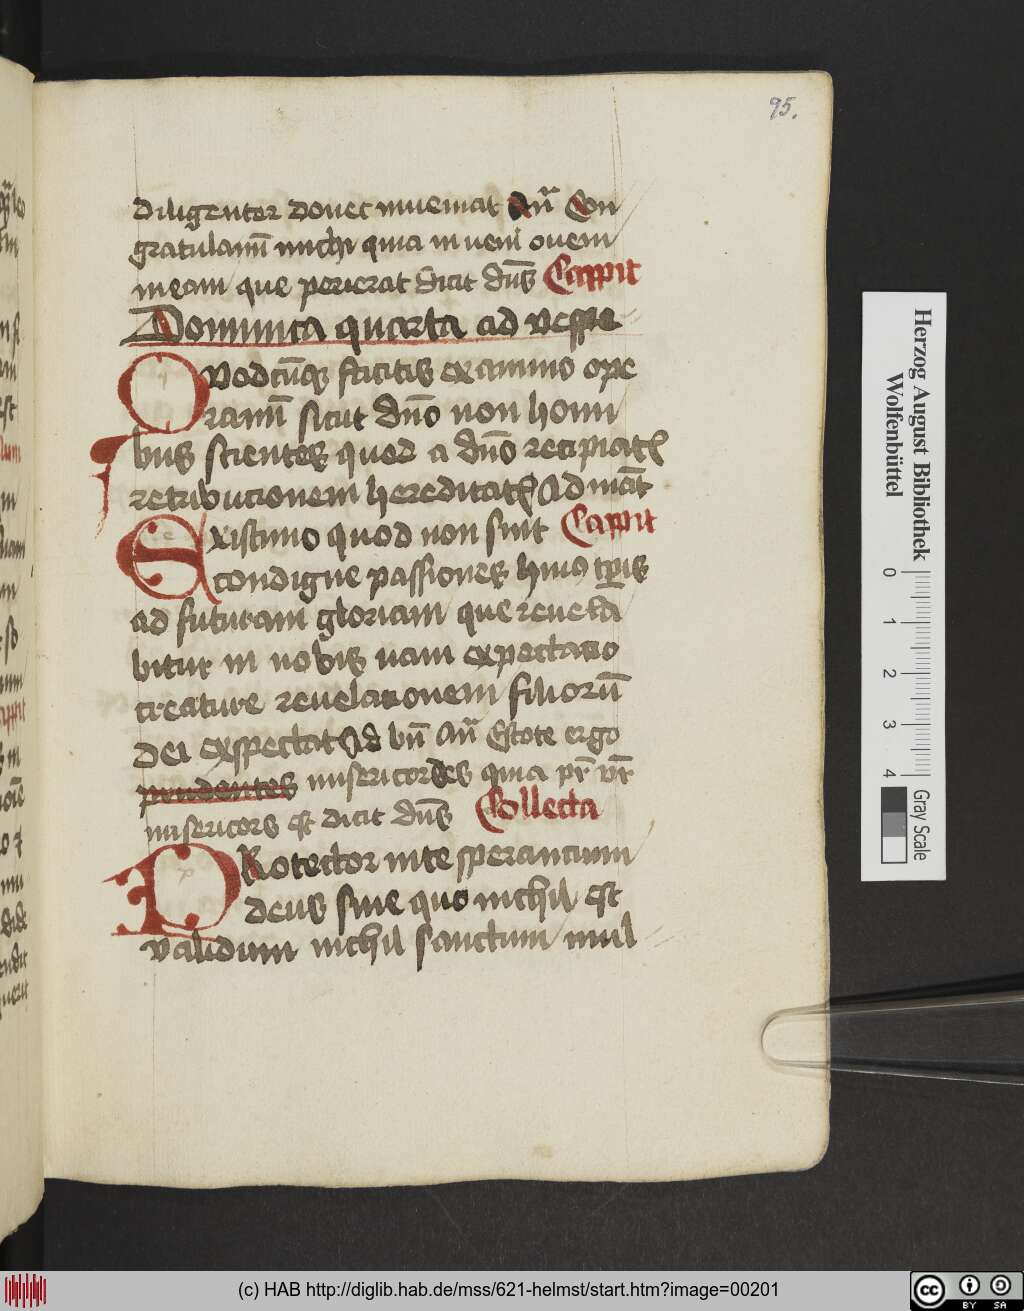 95.
diligenter donec inueniat añ Con
gratulamĩ michi quia in ueni ouem
meam que perierat dicit dñs Cappit
Dominica quarta ad vesspe
Qvodcũq facitis ex animo ope
ramĩ sicut dño non homi
bus scientes quod a dño recipiat
retributionem hereditat Ad mat
Exístimo quod non sunt Cappit
condigne passiones huius tpis
ad futuram gloriam que reuela
bitur in nobis nam expectatio
creature reuelationem filiorũ
dei exspectat Ad bñ Añ Estote ergo
prudentes misericordes quia pr vr
misericors est dicit dñs Collecta
PRotector in te sperantium
deus sine quo nichil est
validum nichil sanctum mul
Herzog August Bibliothek
Wolfenbüttel
0 1 2 3 4
Gray Scale
(c) HAB http://diglib.hab.de/mss/621-helmst/start.htm?image=00201
cc BY SA